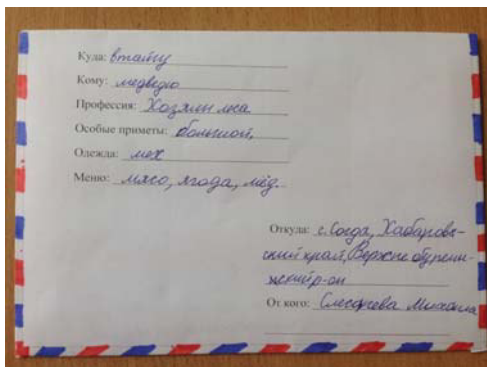 Куда: в тайгу
Кому: медведю
Профессия: Хозяин леса
Особые приметы: большой,
Одежда: мех
Меню: мясо, ягода, мёд.
Откуда: с. Согда, Хабаров-
ский край, Верхнебуреин-
ский р-он
От кого: Слесарева Михаила